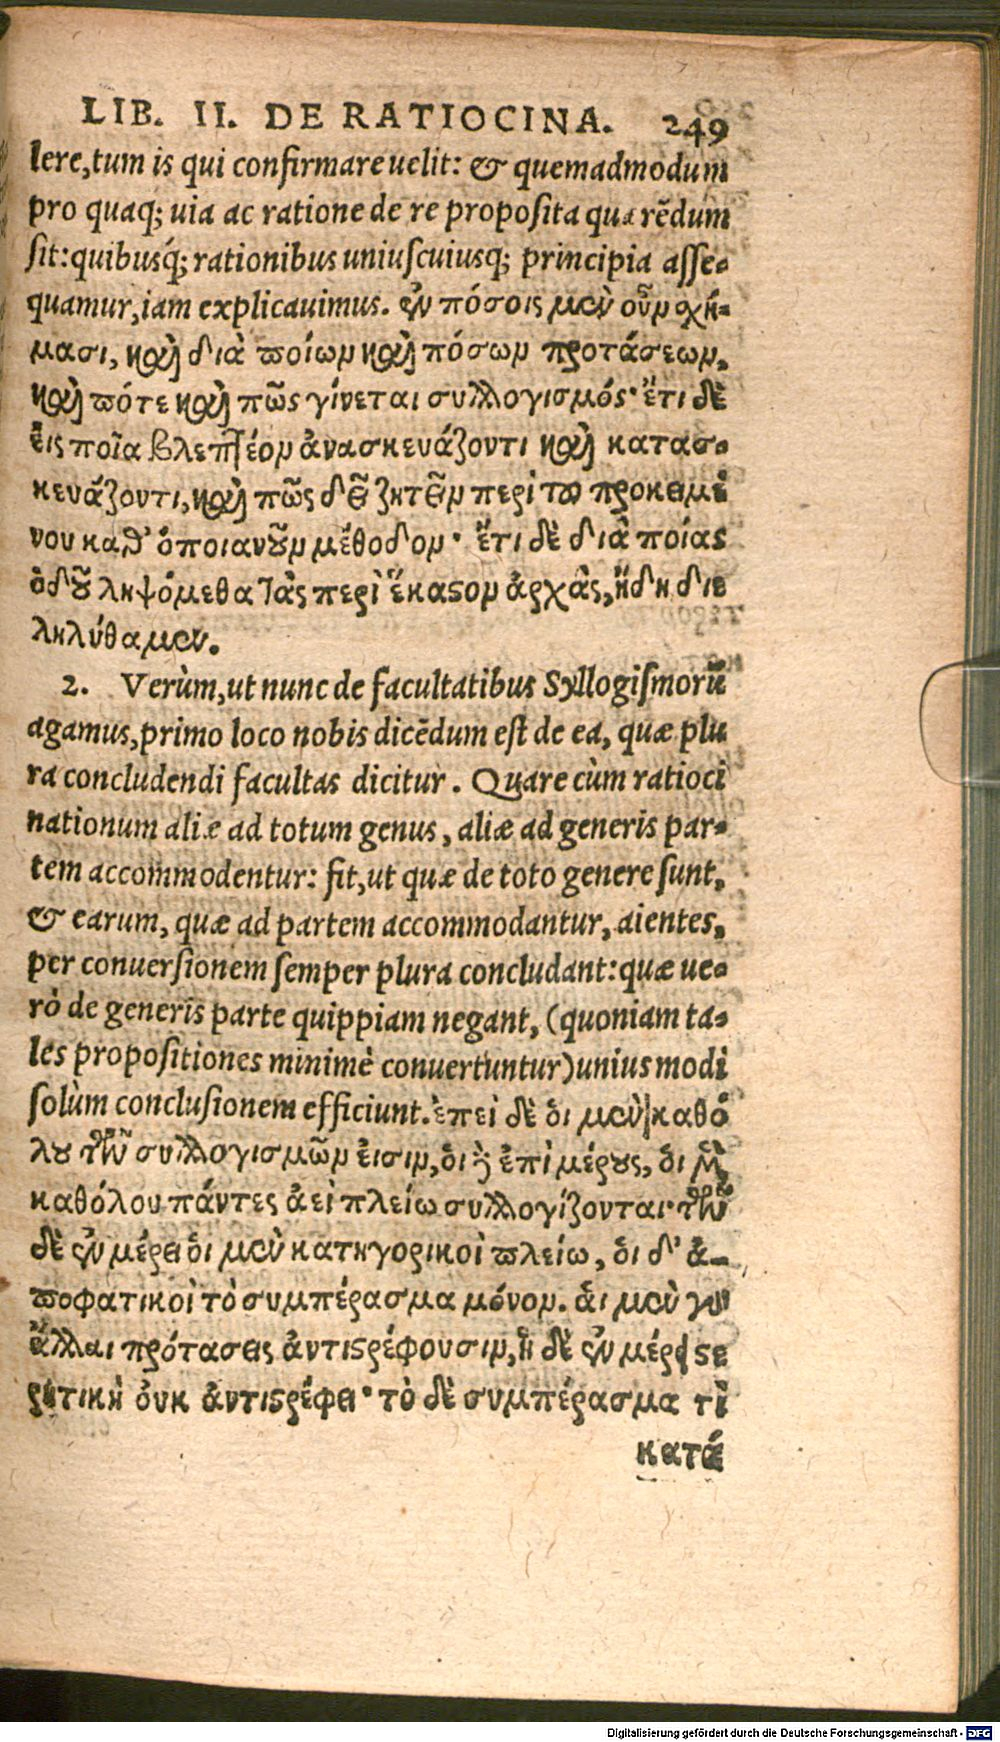 LIB. II. DE RATIOCINA. 249
lere, tum is qui confirmare uelit: & quemadmodum
pro quaq; uia ac ratione de re proposita quærẽdum
sit: quibusq́; rationibus uniuscuiusq; principia asse-
quamur, iam explicauimus. ἐν πόσοις μὲν οὖν σχή-
μασι, καὶ διὰ ποίων καὶ πόσων προτάσεων,
καὶ πότε καὶ πῶς γίνεται συλλογισμός· ἔτι δὲ
εἰς ποῖα βλεπτέον ἀνασκευάζοντι καὶ κατασ-
κευάζοντι, καὶ πῶς δεῖ ζητεῖν περὶ τοῦ προκειμέ
νου καθ' ὁποιανοῦν μέθοδον· ἔτι δὲ διὰ ποίας
ὁδοῦ ληψόμεθα τὰς περὶ ἕκαστον ἀρχὰς, ἤδη διε
ληλύθαμεν.
2. Verùm, ut nunc de facultatibus Syllogismorũ
agamus, primo loco nobis dicẽdum est de ea, quæ plu
ra concludendi facultas dicitur. Quare cùm ratioci
nationum aliæ ad totum genus, aliæ ad generis par-
tem accommodentur: fit, ut quæ de toto genere sunt,
& earum, quæ ad partem accommodantur, aientes,
per conuersionem semper plura concludant: quæ ue-
rò de generis parte quippiam negant, (quoniam ta-
les propositiones minimè conuertuntur) unius modi
solùm conclusionem efficiunt. ἐπεὶ δὲ ὁι μὲν καθό
λου τῶν συλλογισμῶν εἰσιν, ὁι δὲ ἐπὶ μέρους, ὁι μὲν
καθόλου πάντες ἀεὶ πλείω συλλογίζονται· τῶν
δὲ ἐν μέρει ὁι μὲν κατηγορικοὶ πλείω, ὁι δ' ἀ-
ποφατικοὶ τὸ συμπέρασμα μόνον. ἁι μὲν γὰρ
ἄλλαι πρότασεις ἀντιστρέφουσιν, ἡ δὲ ἐν μέρει στε
ρητικὴ ὀυκ ἀντιστρέφει· τὸ δὲ συμπέρασμα τὶ
κατά
Digitalisierung gefördert durch die Deutsche Forschungsgemeinschaft - DFG